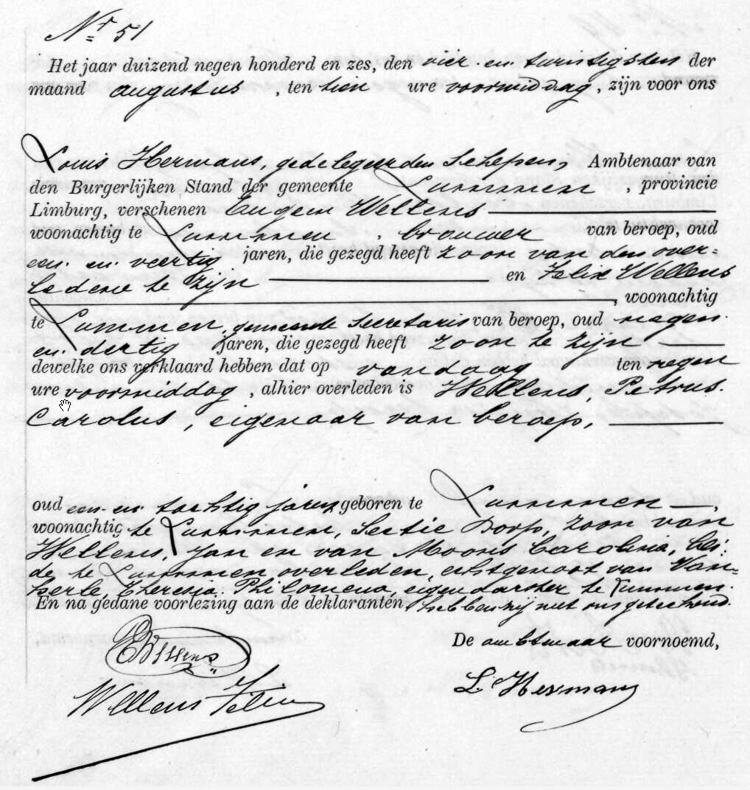 Nr 51
Het jaar duizend negen honderd en zes, den vier en twintigsten der
maand augustus, ten tien ure voormiddag, zijn voor ons
Louis Hermans, gedelegeerden schepen, Ambtenaar van
den Burgerlijken Stand der gemeente Lummen, provincie
Limburg, verschenen Eugeen Wellens
woonachtig te Lummen, brouwer van beroep, oud
een en veertig jaren, die gezegd heeft zoon van den over-
ledene te zijn en Felix Wellens
, woonachtig
te Lummen, gemeente secretaris van beroep, oud negen
en dertig jaren, die gezegd heeft zoon te zijn
dewelke ons verklaard hebben dat op vandaag ten negen
ure voormiddag, alhier overleden is Wellens, Petrus
Carolus, eigenaar van beroep,
oud een en tachtig jaren geboren te Lummen,
woonachtig te Lummen, Sectie Dorp, zoon van
Wellens, Jan en van Moons Carolina, bei-
de te Lummen overleden, echtgenoot van Van-
perle, Theresia Philomena, eigenaarster te Lummen.
En na gedane voorlezing aan de deklaranten hebben zij met ons geteekend.
De ambtenaar voornoemd,
EWellens
Wellens Felix
Ls Hermans